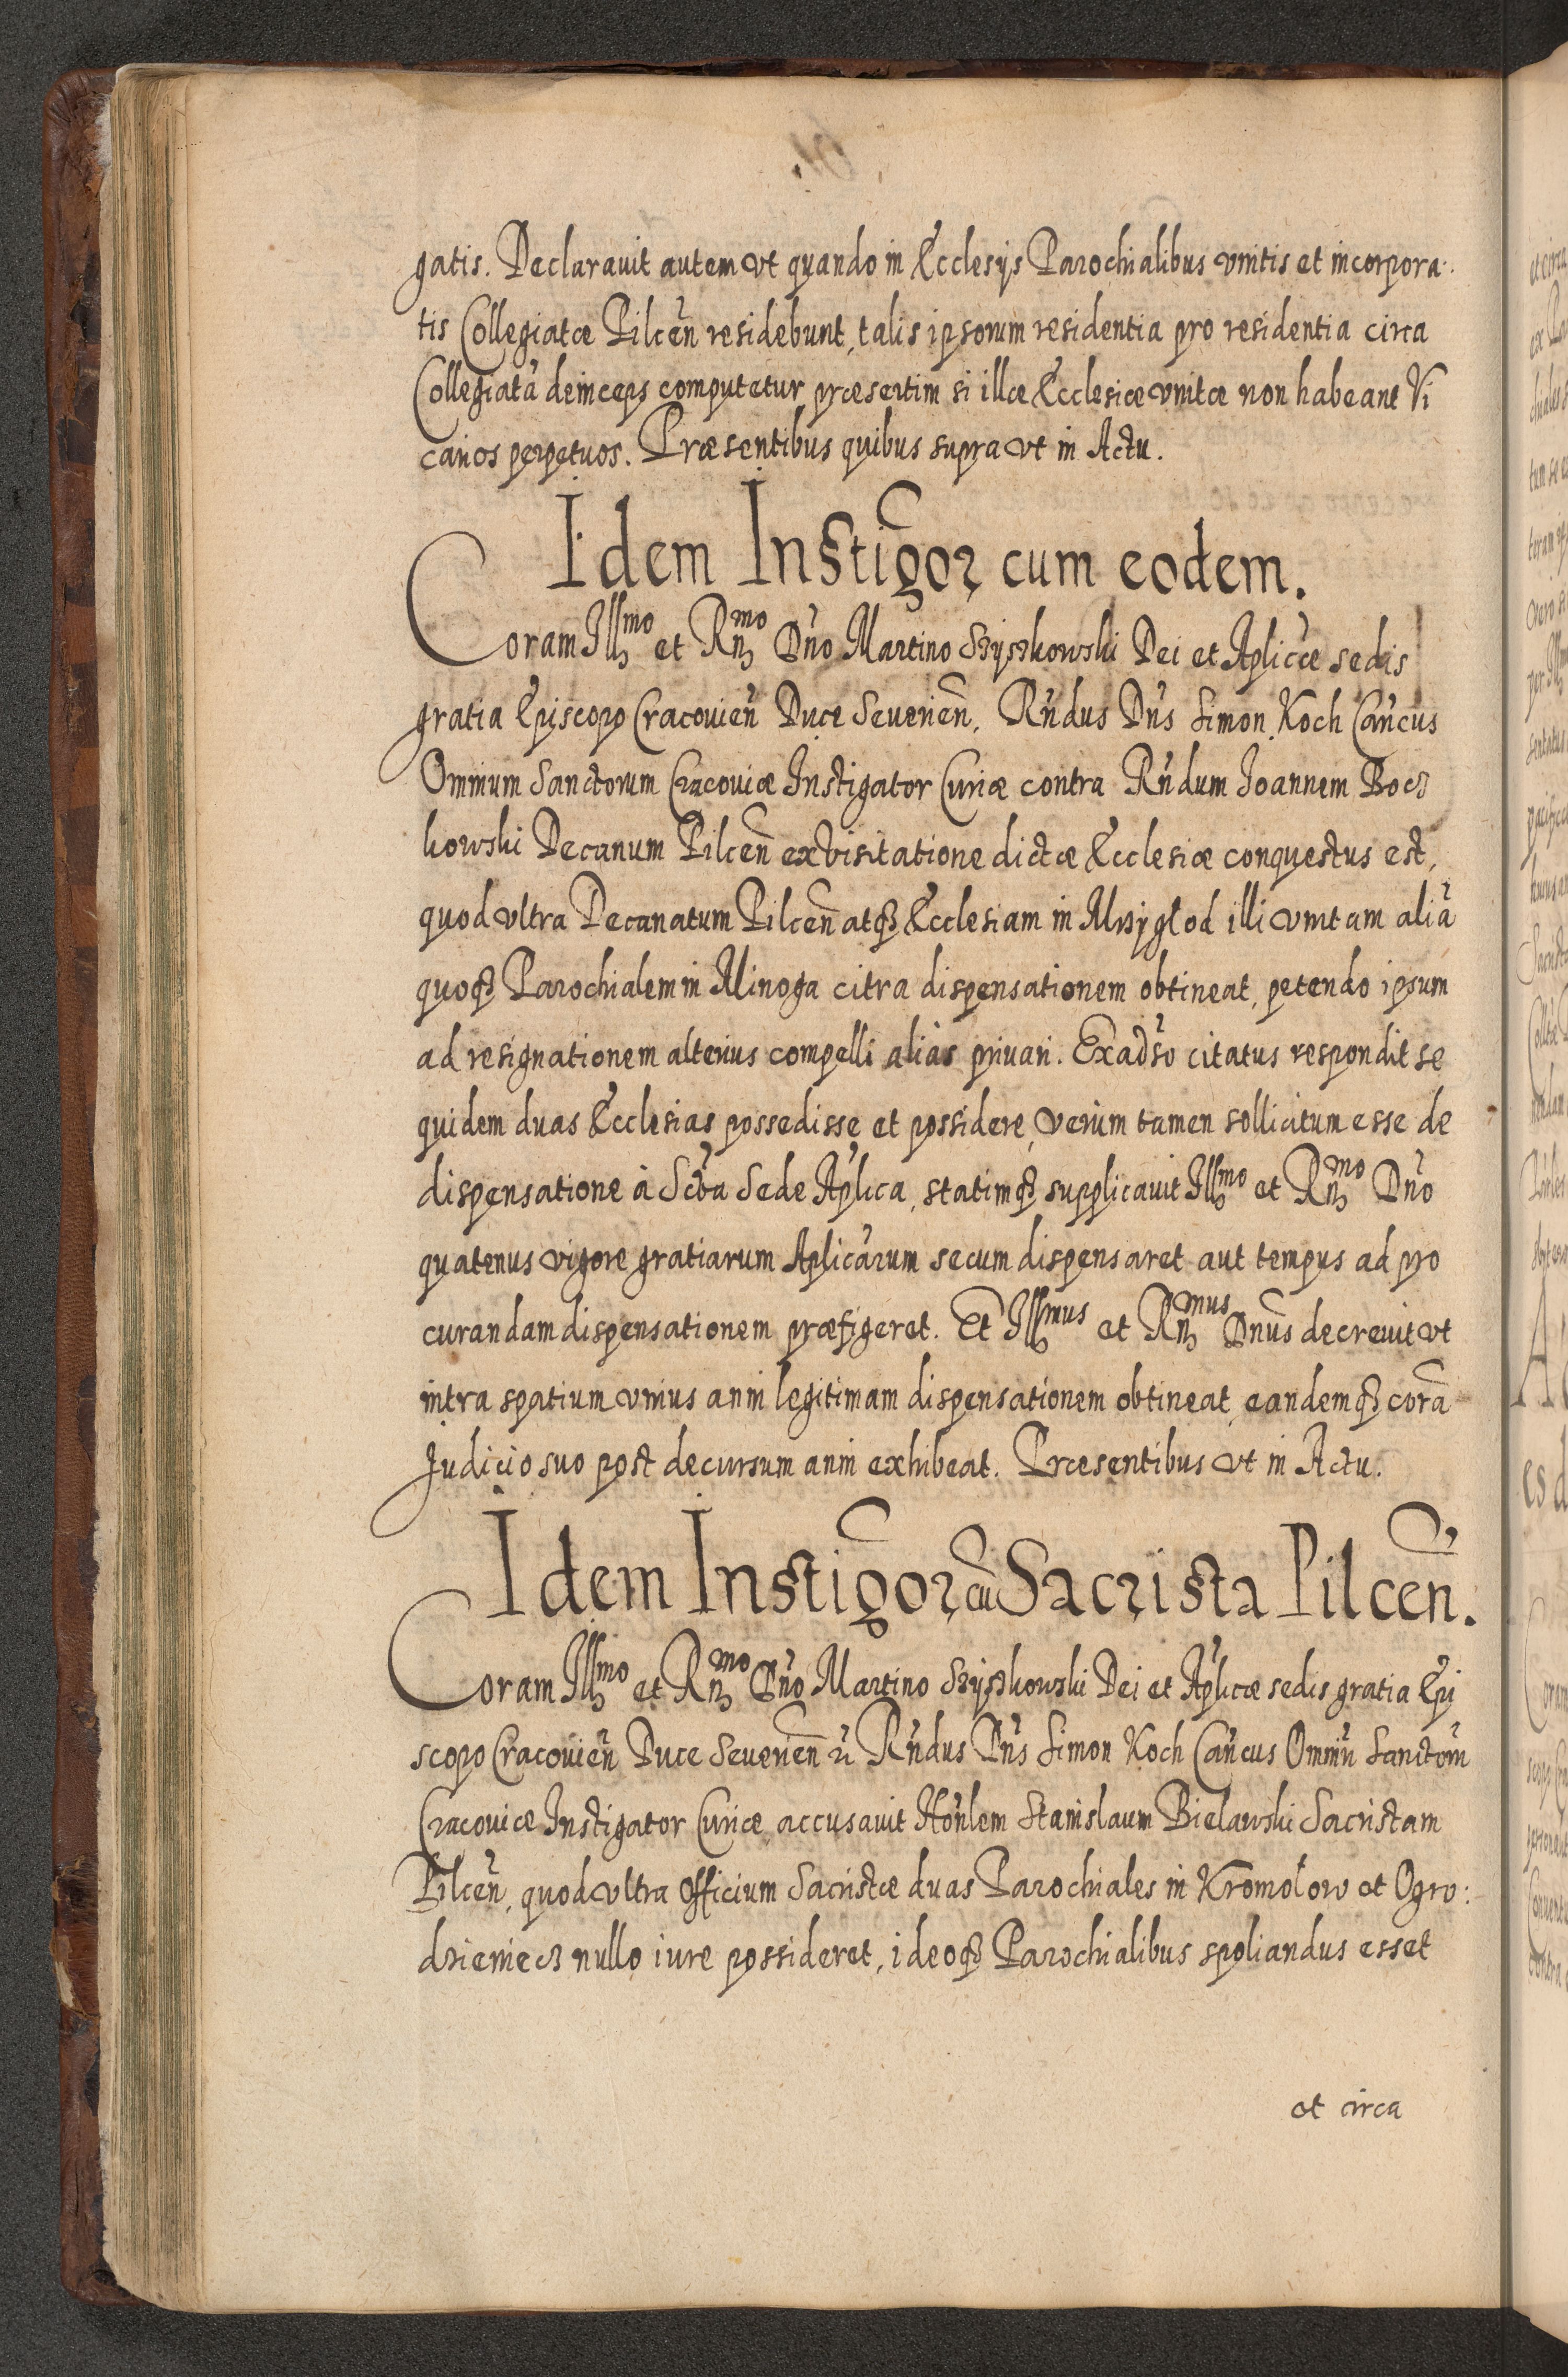 gatis. Declarauit autem vt quando in Ecclesijs Parochialibus vnitis et incorpora:
tis Collegiatæ Pilceñ residebunt, talis ipsorum residentia pro residentia circa
Collegiatã deinceps computetur præsertim si illæ Ecclesiæ vnitæ non habeant Vi
carios perpetuos. Præsentibus quibus supra vt in Actu.
Idem Instigõr cum eodem.
Coram Illmo et Rnmo Dño Martino Szyszkowski Dei et Aplicæ sedis
gratia Episcopo Cracouieñ Duce Seuerieñ, Rñdus Dñs Simon Koch Cañcus
Omnium Sanctorum Cracouiæ Instigator Curiæ contra Rñdum Ioannem Bocz
kowski Decanum Pilceñ ex Visitatione dictæ Ecclesiæ conquestus est,
quod vltra Decanatum Pilceñ atqꝫ Ecclesiam in Mrzygłod illi vnitam aliã
quoqꝫ Parochialem in Minoga citra dispensationem obtineat, petendo ipsum
ad resignationem alterius compelli aliàs priuari. Exadũso citatus respondit se
quidem duas Ecclesias possedisse et possidere, verùm tamen sollicitum esse de
dispensatione à Sctã Sede Aplica, statimqꝫ supplicauit Illmo et Rnmo Dño
quatenus vigore gratiarum Aplicarum secum dispensaret aut tempus ad pro
curandam dispensationem præfigeret. Et Illmus et Rnmus Dnũs decreuit vt
intra spatium vnius anni legitimam dispensationem obtineat, eandemqꝫ corã
Judicio suo post decursum anni exhibeat. Præsentibus vt in Actu.
Idem Instigõr cũ Sacrista Pilceñ.
Coram Illmo et Rnmo Dño Martino Szyszkowski Dei et Aplicæ sedis gratia Epi
scopo Cracouieñ Duce Seuerieñ Rñdus Dñs Simon Koch Cañcus Omniũ Sanctorũ
Cracouiæ Instigator Curiæ, accusauit Honlem Stanislaum Bielawski Sacristam
Pilceñ, quod vltra officium Sacristæ duas Parochiales in Kromołow et Ogro:
dzieniecz nullo iure possideret, ideoqꝫ Parochialibus spoliandus esset
et circa